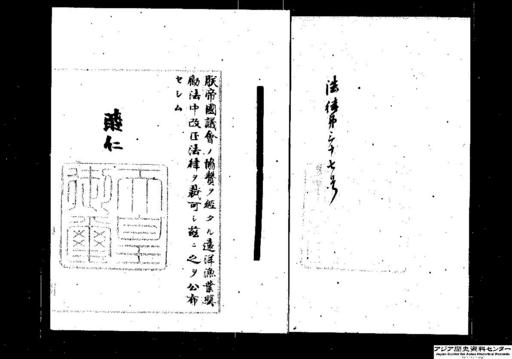 法律第三十七号
朕帝國議會ノ協賛ヲ經タル遠洋漁業奨
勵法中改正法律ヲ裁可シ茲ニ之ヲ公布
セシム
睦仁
天皇
御璽
アジア歴史資料センター
Japan Center for Asian Historical Records